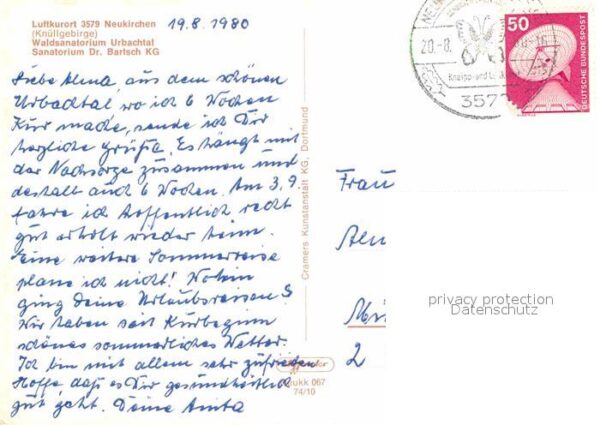 Luftkurort 3579 Neukirchen
(Knüllgebirge)
Waldsanatorium Urbachtal
Sanatorium Dr. Bartsch KG
19.8.1980
Liebe Alma, aus dem schönen
Urbachtal, wo ich 6 Wochen
Kur mache, sende ich Dir
herzliche Grüße. Es hängt mit
der Nachsorge zusammen und
deshalb auch 6 Wochen. Am 3.9.
fahre ich hoffentlich recht
gut erholt wieder heim.
Eine weitere Sommerreise
plane ich nicht! Wohin
ging Deine Urlaubsreise?
Wir haben seit Kurbeginn
schönes sommerliches Wetter.
Ich bin mit allem sehr zufrieden
Hoffe, daß es Dir gesundheitlich
gut geht. Deine Anita
Cramers Kunstanstalt KG, Dortmund
ukk 067
74/10
20.-8.
Kneipp- und
3579
50
DEUTSCHE BUNDESPOST
Frau
2
privacy protection
Datenschutz